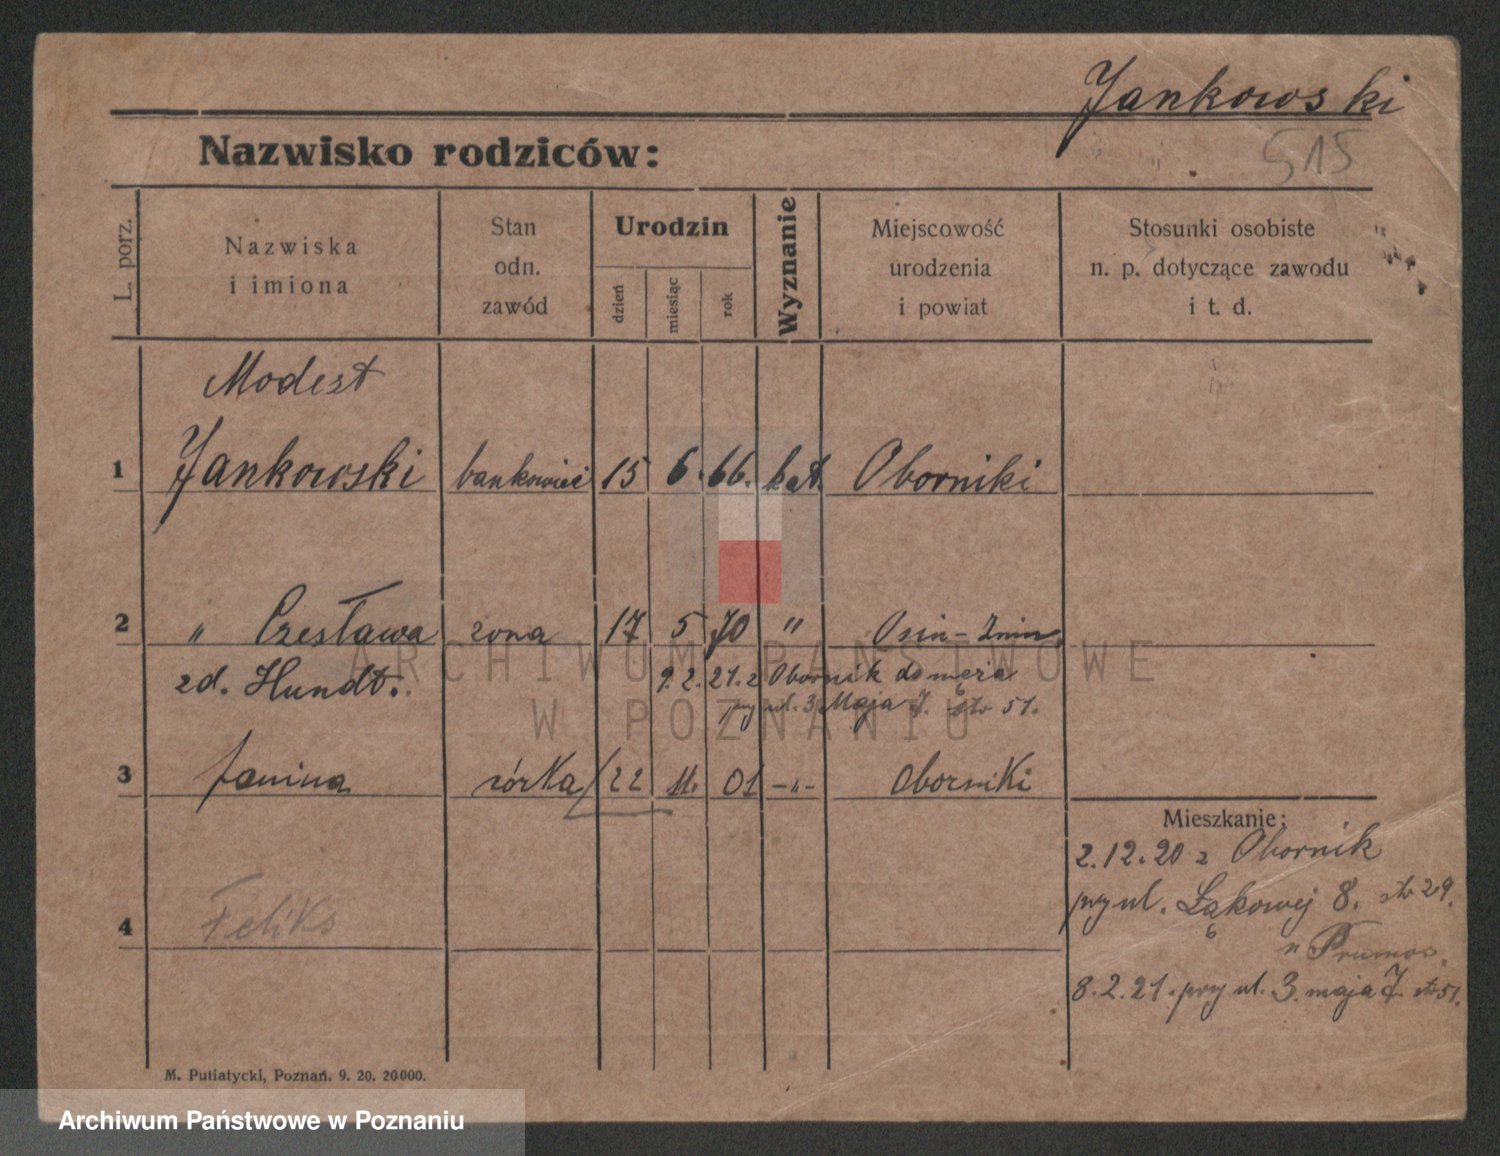 Jankowski
515
Nazwisko rodziców:
L. porz.
Nazwiska
i imiona
Stan
odn.
zawód
Urodzin
dzień
miesiąc
rok
Wyznanie
Miejscowość
urodzenia
i powiat
Stosunki osobiste
n. p. dotyczące zawodu
i t. d.
Modest
1 Jankowski bankowiec 15 6. 66. kat. Oborniki
2 " Czesława żona 17 5 70 " Osin - Żnin
zd. Hundt. 9.2.21. z Obornik do męża
przy ul. 3 Maja 7. str 51.
3 Janina córka 22 11. 01 -"- Oborniki
Mieszkanie:
2.12.20 z Obornik
przy ul. Łąkowej 8. str 29.
6
4 Feliks
8.2.21. przy ul. 3. maja 7 str 51.
M. Putiatycki, Poznań. 9. 20. 20000.
ARCHIWUM PAŃSTWOWE
W POZNANIU
Archiwum Państwowe w Poznaniu